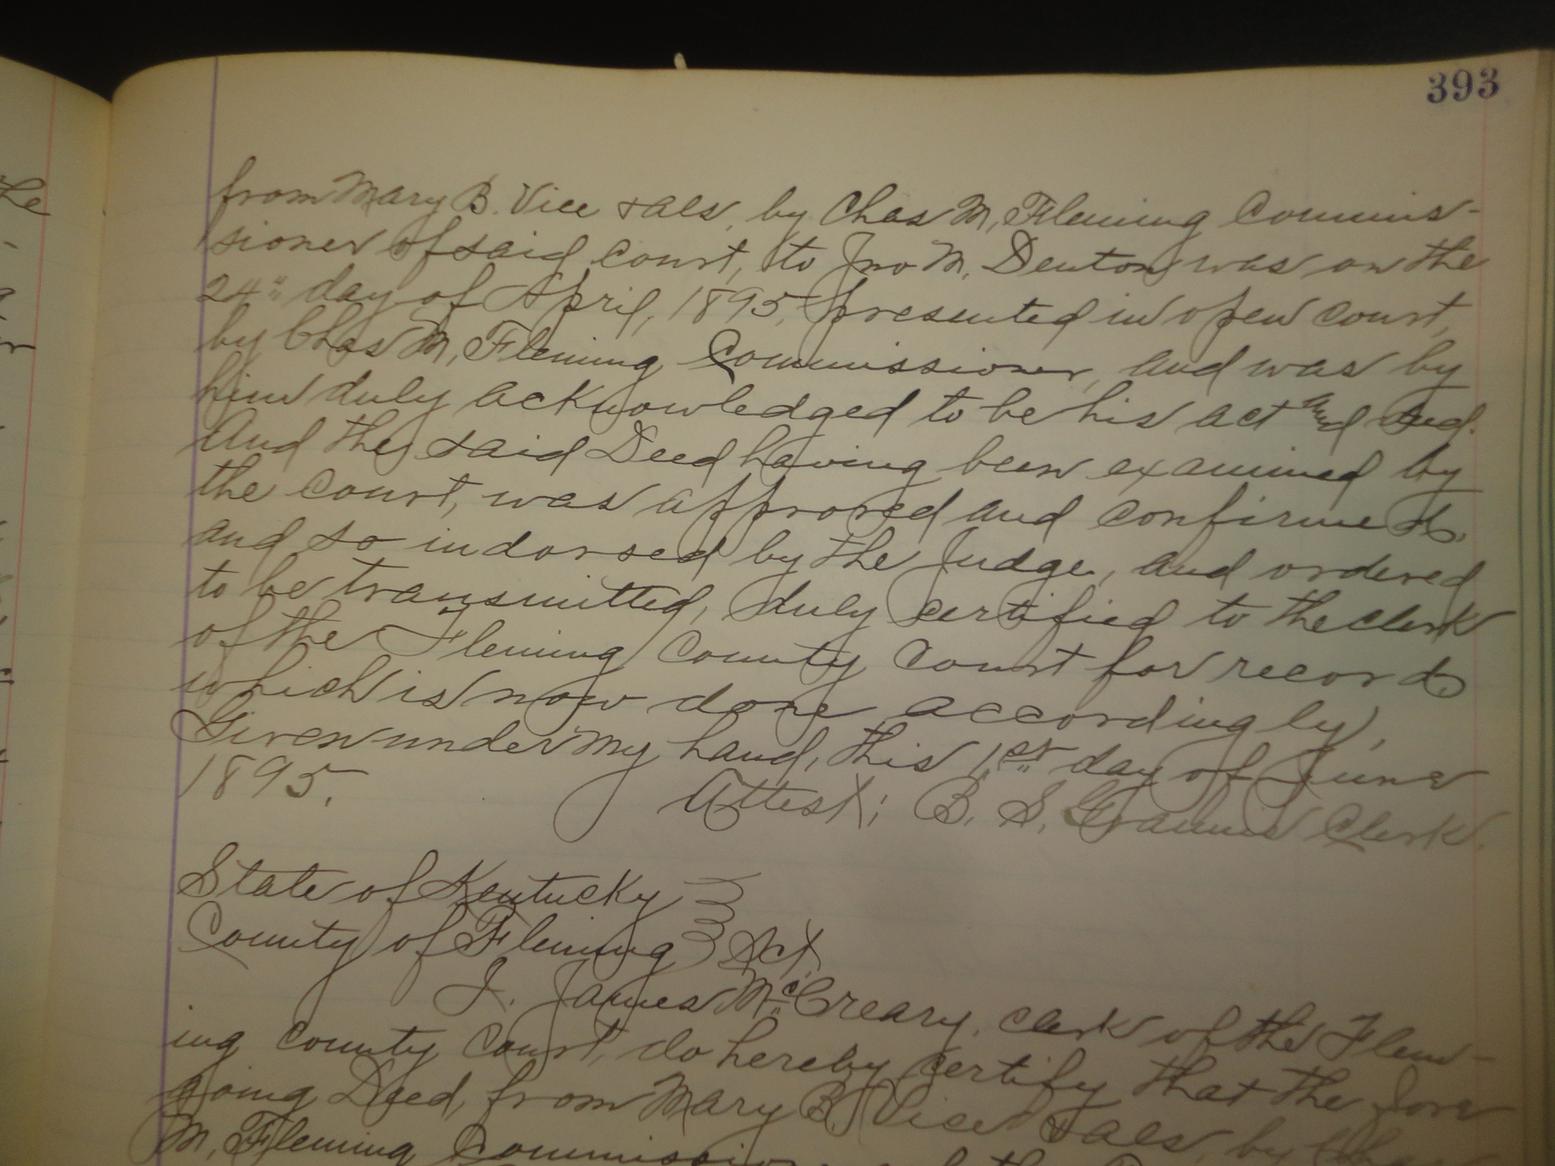 393
from Mary B. Vice &als, by Chas M. Fleming Commis-
sioner of said court, to Jno M. Denton was on the
24" day of April, 1895, presented in open court,
by Chas M. Fleming Commissioner, and was by
him duly acknowledged to be his act and deed.
And the said Deed having been examined by
the court, was approved and confirmed,
and so indorsed by the Judge, and ordered
to be transmitted, duly certified to the clerk
of the Fleming County Court for record
which is now done accordingly,
Given under my hand, this 1st day of June
1895.
Attest; B. S. Clerk.
State of Kentucky
County of Fleming Sct
I. James McCreary, clerk of the Flem-
ing County Court, do hereby certify that the fore
going Deed, from Mary B. Vice &als, by Chas
M. Fleming Commissioner
the